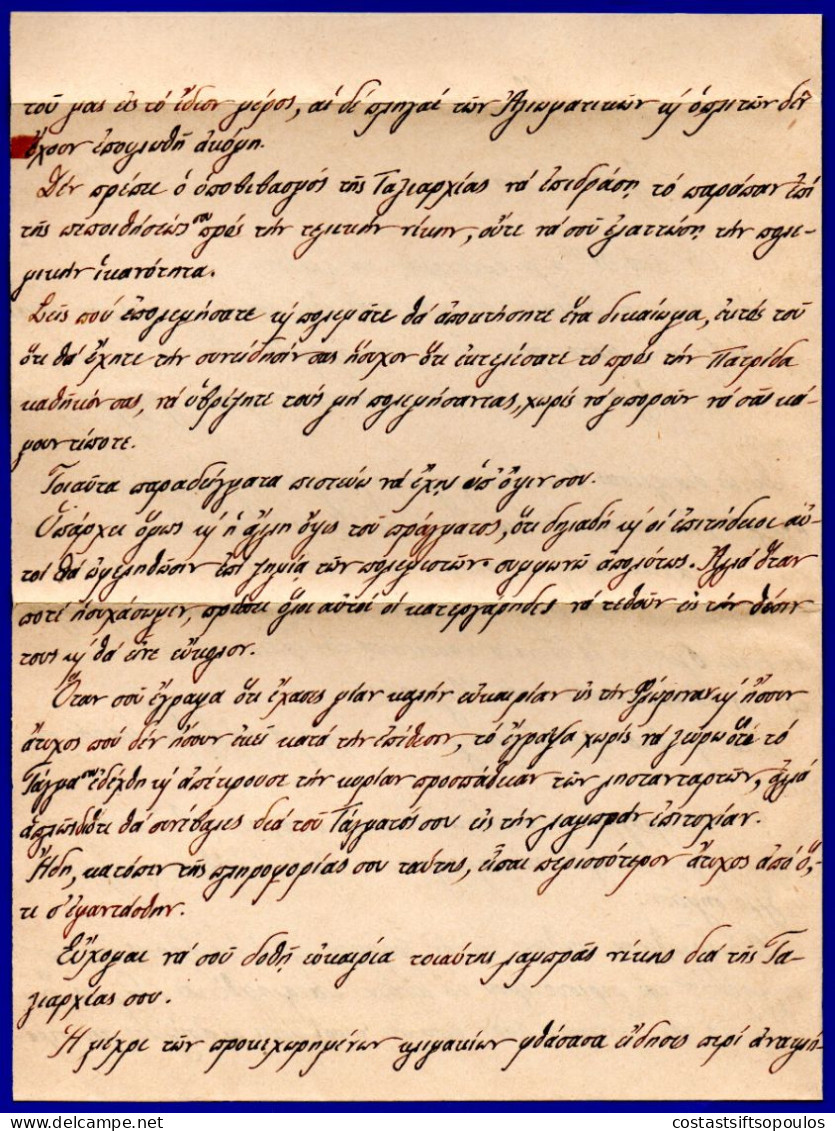 τοῦ μας εἰς τό ἴδιον μέρος, αἱ δέ πληγαί τῶν Ἀξιωματικῶν κ' ὁπλιτῶν δέν
ἔχουν ἐπουλωθῆ ἀκόμη.
Δέν πρέπει ὁ ὑποβιβασμός τῆς Ταξιαρχίας νά ἐπιδράσῃ τό παράπαν ἐπί
τῆς πεποιθήσεώς σου πρός τήν τελικήν νίκην, οὔτε νά σοῦ ἐλαττώσῃ τήν πολε-
μικήν ἱκανότητα.
Σεῖς πού ἐπολεμήσατε κ' πολεμᾶτε θά ἀποκτήσητε ἕνα δικαίωμα, ἐκτός τοῦ
ὅτι θά ἔχητε τήν συνείδησίν σας ἥσυχον ὅτι ἐκτελέσατε τό πρός τήν Πατρίδα
καθῆκόν σας, νά ὑβρίζητε τούς μή πολεμήσαντας, χωρίς νά μποροῦν νά σᾶς κά-
μουν τίποτε.
Τοιαῦτα παραδείγματα πιστεύω νά ἔχῃς ὑπ' ὄψιν σου.
Ὑπάρχει ὅμως κ' ἡ ἄλλη ὄψις τοῦ πράγματος, ὅτι δηλαδή κ' οἱ ἐπιτήδειοι αὐ-
τοί θά ὠφεληθῶσιν ἐπί ζημίᾳ τῶν πολεμιστῶν· συμφωνῶ ἀπολύτως. Ἀλλά ὅταν
ποτέ ἡσυχάσωμεν, πρέπει ὅλοι αὐτοί οἱ κατεργαρηδες νά τεθοῦν εἰς τήν θέσιν
τους κ' θά εἶνε εὔκολον.
Ὅταν σοῦ ἔγραφα ὅτι ἔχασες μίαν καλήν εὐκαιρίαν εἰς τήν Φλώριναν κ' ἤσουν
ἄτυχος πού δέν ἤσουν ἐκεῖ κατά τήν ἐπίθεσιν, τό ἔγραψα χωρίς νά ξεύρω ὅτι τό
Τάγμα σου ἐδέχθη κ' ἀπέκρουσε τήν κυρίαν προσπάθειαν τῶν ληστανταρτῶν, ἀλλά
ἁπλῶς διότι θά συνέβαλες διά τοῦ Τάγματός σου εἰς τήν λαμπράν ἐπιτυχίαν.
Ἤδη, κατόπιν τῆς πληροφορίας σου ταύτης, εἶσαι περισσότερον ἄτυχος ἀπό ὅ,-
τι σ' ἐφαντάσθην.
Εὔχομαι νά σοῦ δοθῇ εὐκαιρία τοιαύτης λαμπρᾶς νίκης διά τῆς Τα-
ξιαρχίας σου.
Ἡ μέχρι τῶν προκεχωρημένων κλιμακίων φθάσασα εἴδησις περί ἀναπλη-
costastsiftsopoulos